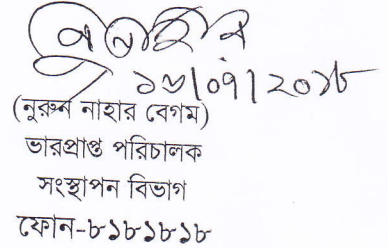 ১৬/০৭/২০১৮
(নুরুন নাহার বেগম)
ভারপ্রাপ্ত পরিচালক
সংস্থাপন বিভাগ
ফোন-৮১৮১৮১৮